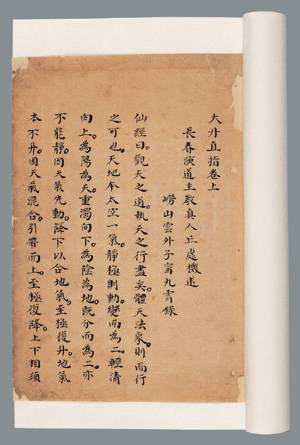 大丹直指卷上
長春演道主教真人丘處機述
嶗山雲外子甯九霄錄
仙經曰。觀天之道。執天之行盡矣。體天法象。則而行
之可也。天地本太空一氣。靜極則動。變而為二。輕清
向上。為陽為天。重濁向下。為陰為地。既分而為二。亦
不能靜。因天氣先動。降下以合地氣。至極復升。地氣
本不升。因天氣混合。引帶而上。至極復降。上下相須